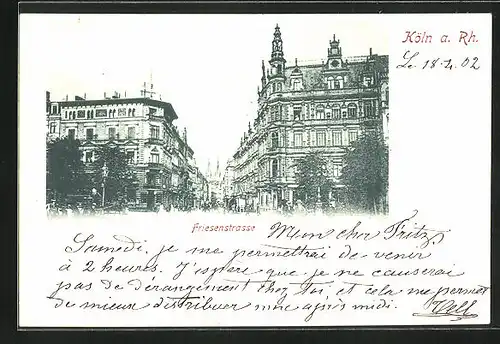 Köln a. Rh.
Le 18.4.02
Friesenstrasse
Mein cher Fritz,
Samedi, je me permettrai de venir
à 2 heures. J'espère que je ne causerai
pas de dérangement chez toi, et cela me permet
de mieux distribuer mne après midi.